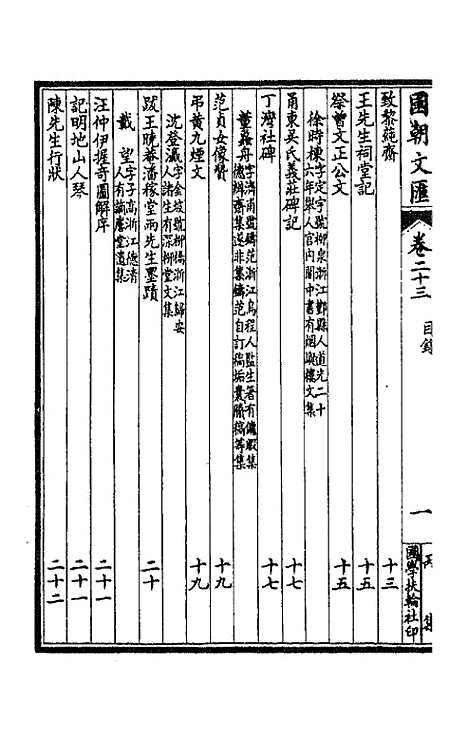 國朝文匯 卷二十三 目錄 一
國學扶輪社印
致黎蒓齋 十三
王先生祠堂記 十五
祭曾文正公文 十五
徐時棟 字定宇號柳泉浙江鄞縣人道光二十
六年舉人官内閣中書有烟嶼樓文集
甬東吳氏義莊碑記 十七
丁灣社碑 十七
董蠡舟
范貞女像贊 十九
弔黃九煙文 十九
沈登瀛 字金坡號柳橋浙江歸安
人諸生有深柳堂文集
跋王曉菴潘稼堂兩先生墨蹟 二十
戴望 字子高浙江德清
人有謫麐堂遺集
汪仲伊握奇圖解序 二十一
記明地山人琴 二十一
陳先生行狀 二十二